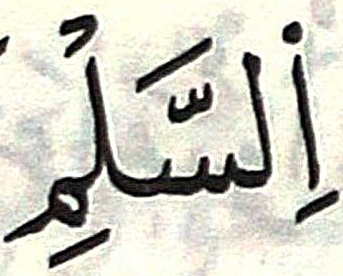 اِلسَّلْمِ